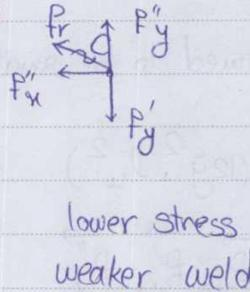 fr f''y
f''x
f'y
lower stress
weaker weld